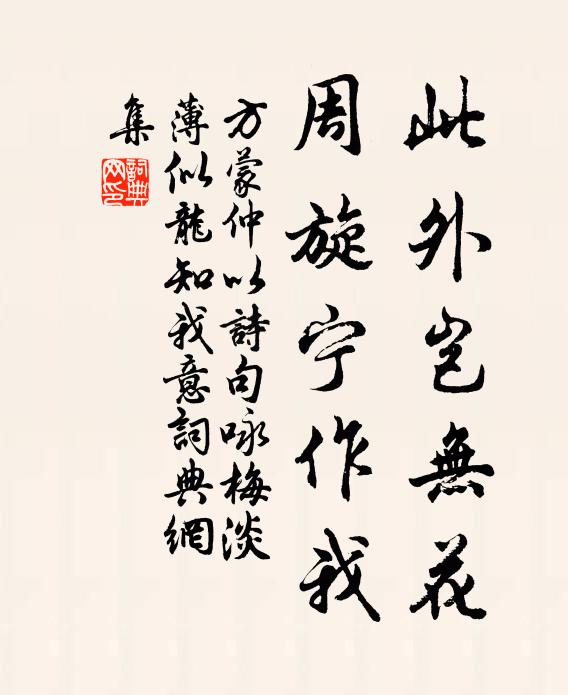 此外岂無花
周旋宁作我
方蒙仲以詩句咏梅淡
薄似龍知我意詞典網
集
詞典網印